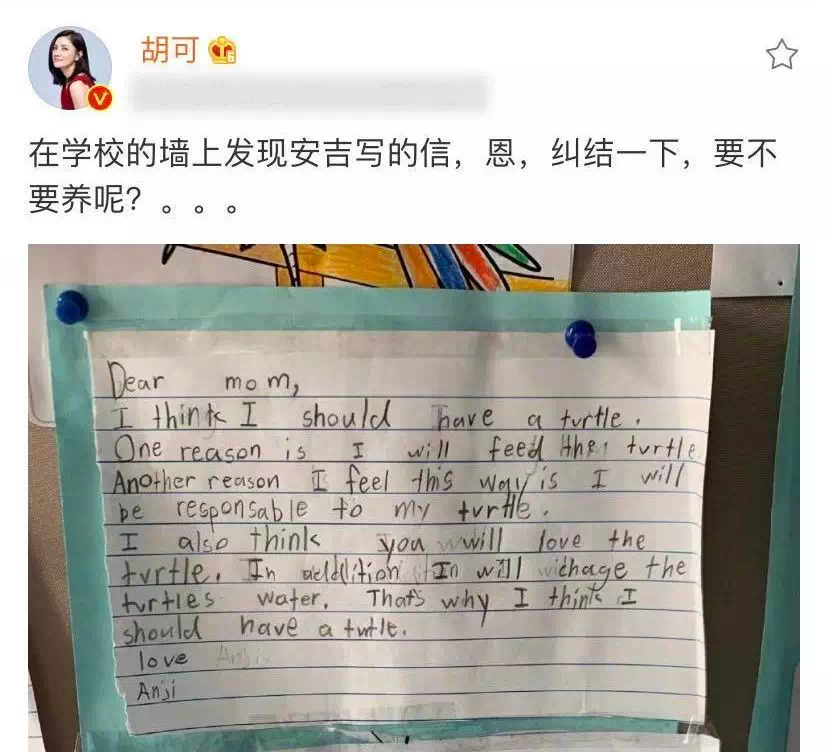 胡可
在学校的墙上发现安吉写的信，恩，纠结一下，要不
要养呢？。。。
Dear mom,
I think I should have a turtle.
One reason is I will feed the turtle
Another reason I feel this way is I will
be responsable to my turtle.
I also think you will love the
turtle. In addition I will chage the
turtles water. That's why I think I
should have a turtle.
love
Anji